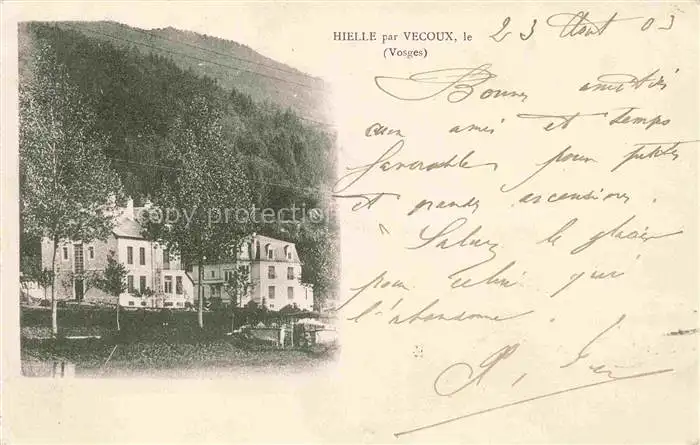 HIELLE par VECOUX, le 23 Aout 03
(Vosges)
Bonnes amitiés
aux amis et temps
favorable pour petites
et grandes ascensions.
Saluez le glacier
pour celui qui
l'abandonne.
copyright